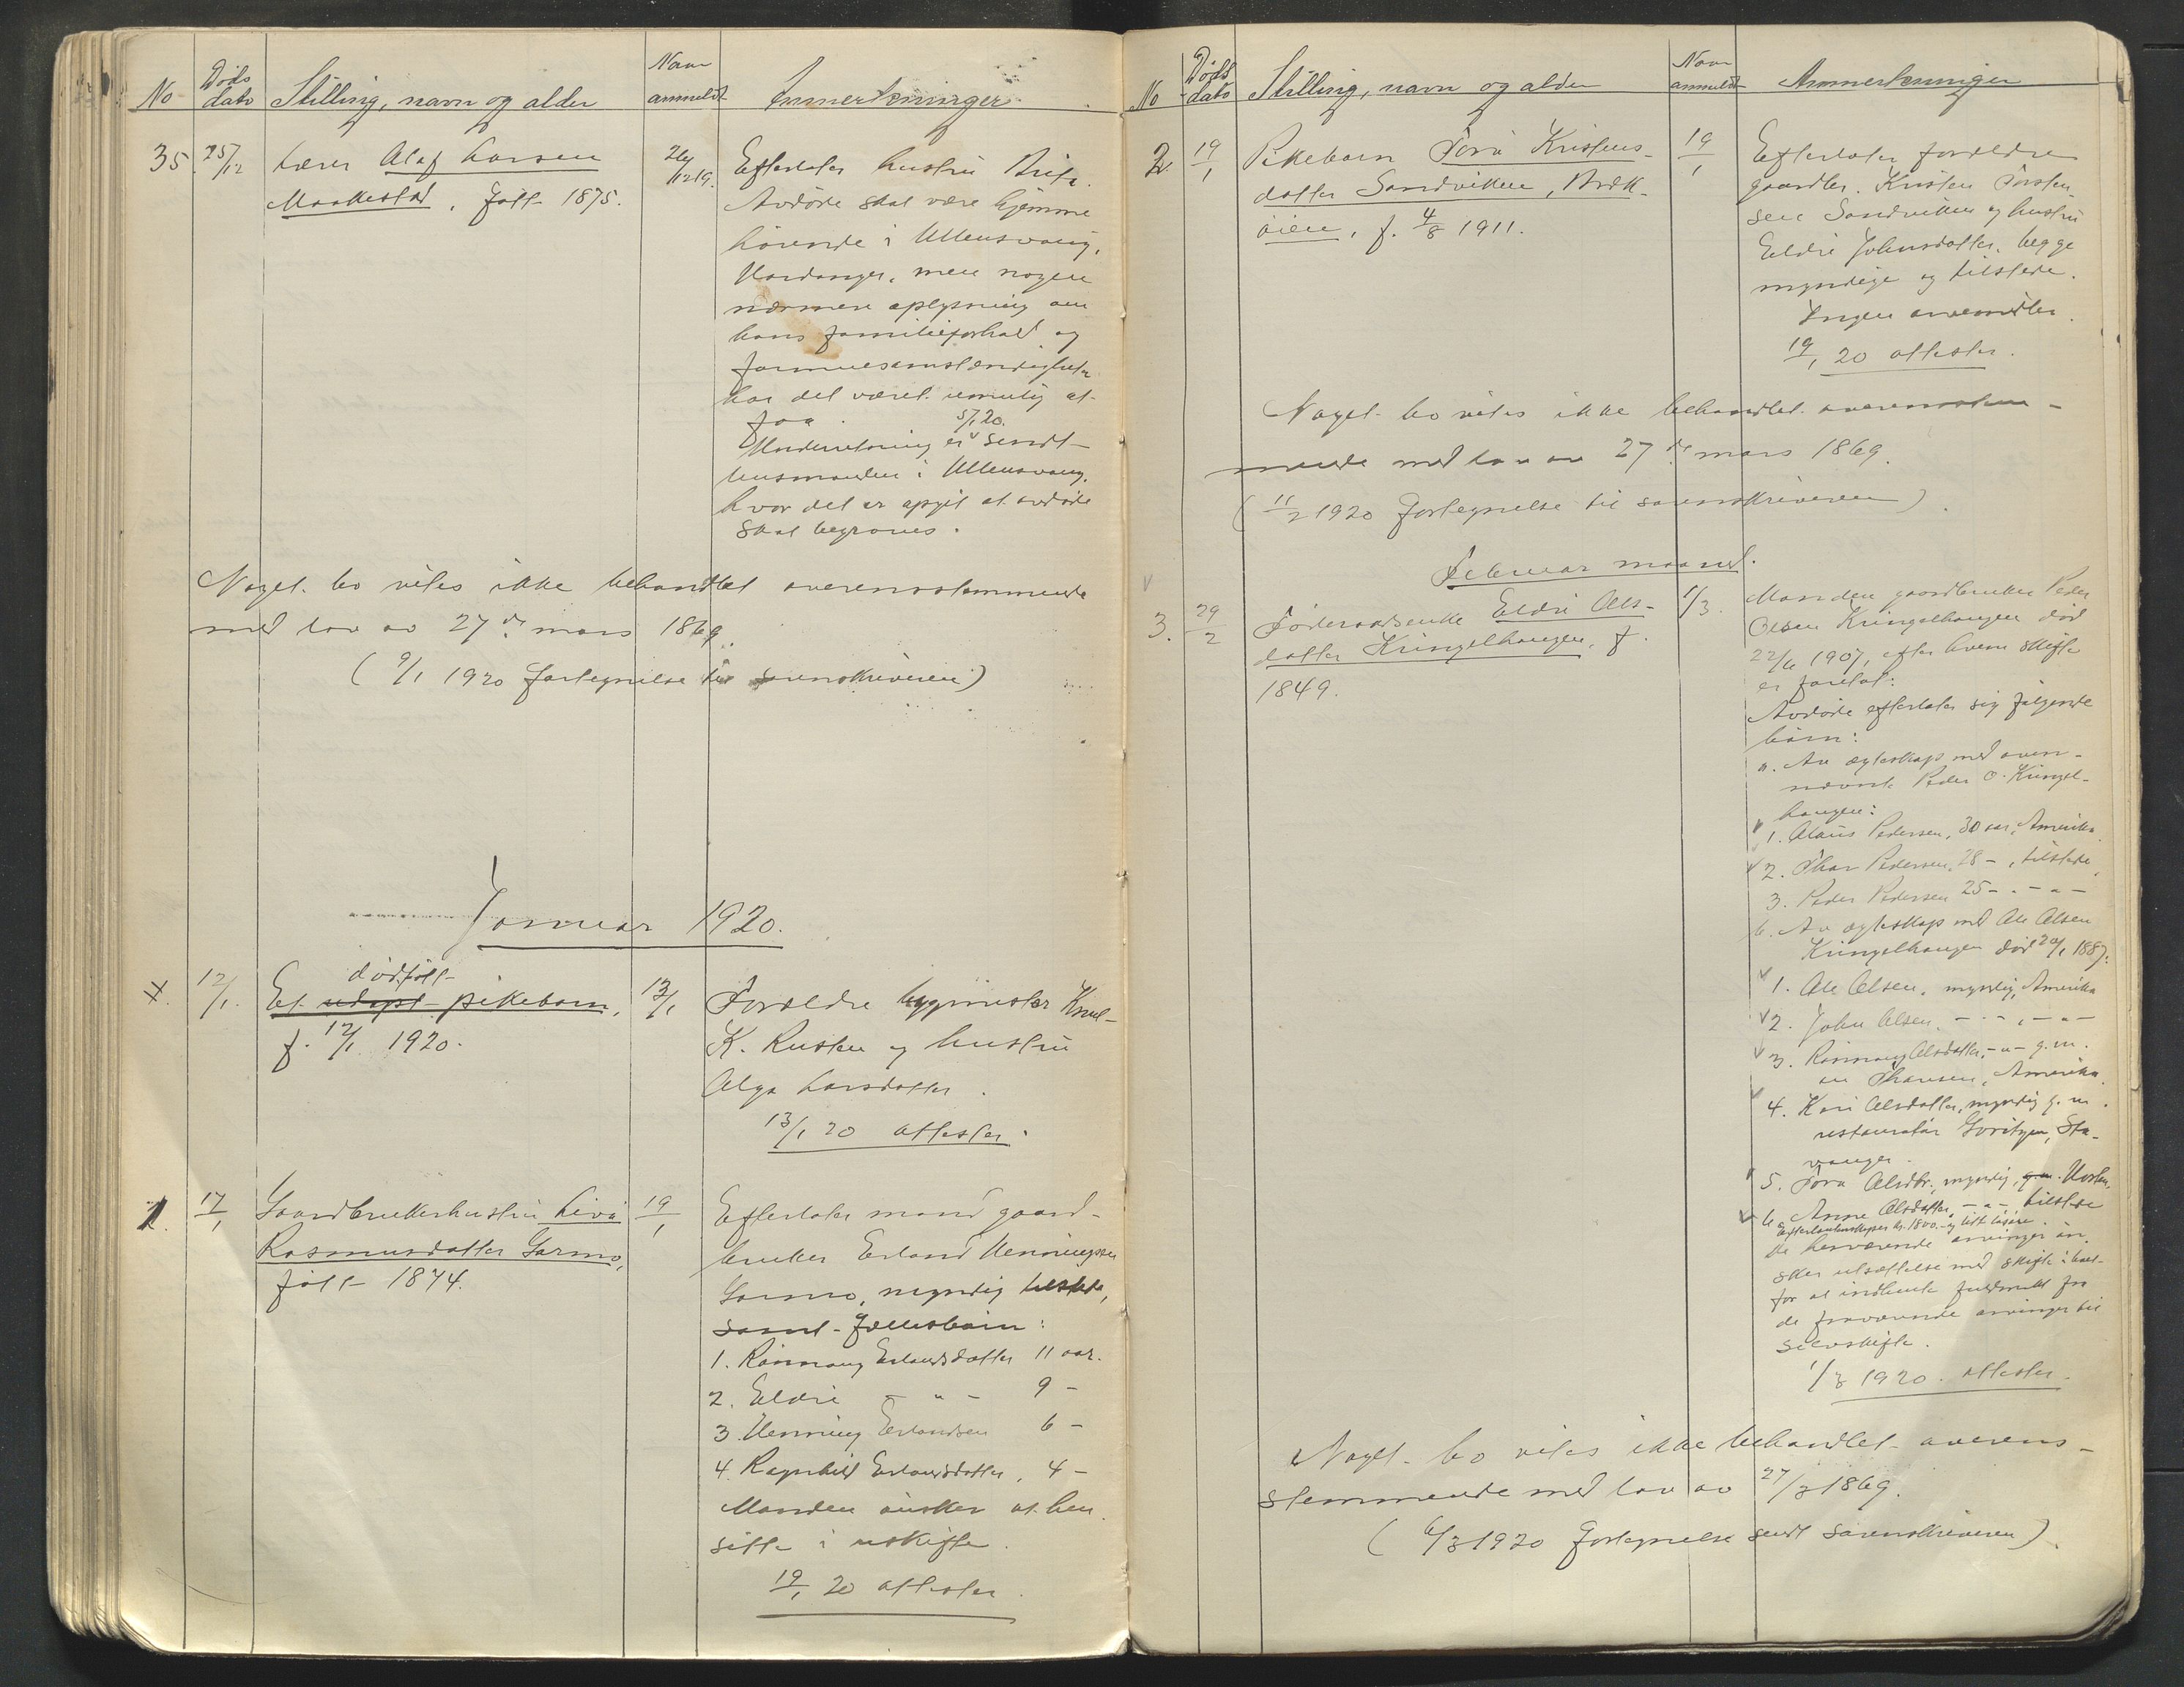 No Døds dato Stilling, navn og alder Naar anmeldt Anmerkninger
35. 25/12 Lærer Olaf Larsen 26/12 19. Efterlater hustru Brita.
Maakestad, født 1875. Avdøde skal være hjemme
hørende i Ullensvang,
Hardanger, men nogen
nærmere oplysning om
hans familieforhold og
formuesomstændigheter
har det været umulig at
faa. 5/1 20.
Underretning er sendt
lensmanden i Ullensvang,
hvor det er opgit at avdøde
skal begraves.
Noget bo vites ikke behandlet overensstemmende
med lov av 27de mars 1869.
(9/1 1920 fortegnelse til sorenskriveren)
Januar 1920.
dødfølt
12/1. Et udøpt pikebarn, 13/1 Forældre bygmester Knut
f. 12/1 1920. K. Rusten og hustru
Olga Larsdatter.
13/1 20 attester.
1. 17/1 Gaardbrukerhustru Livø 19/1 Efterlater mand gaard-
Rasmusdatter Garmo, bruker Erland Henningsen
født 1874. Garmo, myndig tilstede,
samt fællesbarn:
1. Rønnaug Erlandsdatter 11 aar.
2. Eldri - " - 9 -
3. Henning Erlandsen 6 -
4. Ragnhild Erlandsdatter, 4 -
Manden ønsker at hen
sitte i uskifte.
19/1 20 attester.
No Døds dato Stilling, navn og alder Naar anmeldt Anmerkninger
2. 19/1 Pikebarn Tora Kristens- 19/1 Efterlater forældre
datter Sandviken, Bræk- gaardbr. Kristen Torsten
øien, f. 4/8 1911. sen Sandviken og hustru
Eldri Johnsdatter, begge
myndige og tilstede.
Ingen arvemidler.
19/1 20 attester.
Noget bo vites ikke behandlet overensstem-
mende med lov av 27de mars 1869.
(11/2 1920 fortegnelse til sorenskriveren).
Februar maaned.
3. 29/2 Føderaadsenke Eldri Ols- 1/3. Manden gaardbruker Peder
datter Kringelhaugen, f. Olsen Kringelhaugen død
1849. 22/6 1907, efter hvem skifte
er foretat:
Avdøde efterlater sig følgende
børn:
a. Av egteskap med oven-
nævnte Peder O. Kringel-
haugen:
1. Olaus Pedersen, 30 aar, Amerika.
2. Thor Pedersen, 28 -, tilstede.
3. Peder Pedersen 25 - - " -
b. Av egteskap med Ole Olsen
Kringelhaugen død 20/1 1887:
1. Ole Olsen, myndig, Amerika
2. John Olsen, - " -, - " -
3. Rønnaug Olsdatter, - " - g.m.
en Thoresen, Amerika.
4. Kari Olsdatter, myndig g. m.
restauratør, Sta-
vanger.
5. Tora Olsdtr., myndig, g.m.
6. Anne Olsdatter, - " - tilstede
Efterlatenskaper kr. 1800.- og litt løsøre.
De herværende arvinger øn-
sker utsættelse med skiftet
for at indhente fuldmakt fra
de fraværende arvinger til
selvskifte.
1/3 1920. attester.
Noget bo vites ikke behandlet overens-
stemmende med lov av 27/3 1869.
(6/3 1920 fortegnelse sendt sorenskriveren).